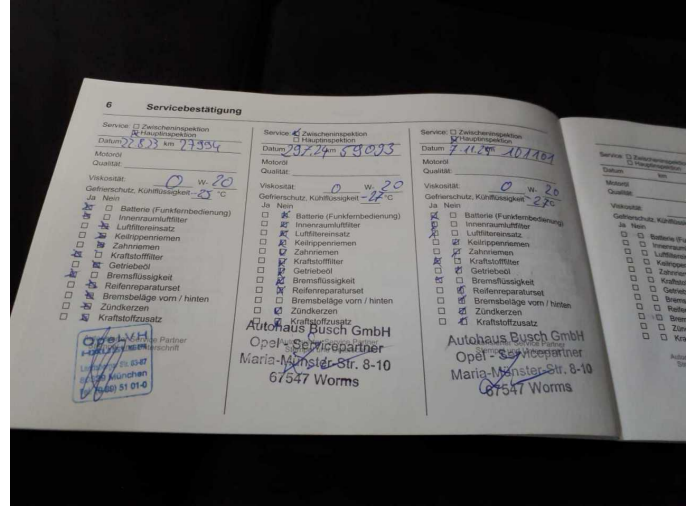 6 Servicebestätigung
Service: Zwischeninspektion
Hauptinspektion
Datum 22.8.23 km 27994
Motoröl
Qualität:
Viskosität: 0 W- 20
Gefrierschutz, Kühlflüssigkeit -25 °C
Ja Nein
Batterie (Funkfernbedienung)
Innenraumluftfilter
Luftfiltereinsatz
Keilrippenriemen
Zahnriemen
Kraftstofffilter
Getriebeöl
Bremsflüssigkeit
Reifenreparaturset
Bremsbeläge vorn / hinten
Zündkerzen
Kraftstoffzusatz
Service Partner
Opel VH
München
51 01-0
Service: Zwischeninspektion
Hauptinspektion
Datum 29.7.24 km 59093
Motoröl
Qualität:
Viskosität: 0 W- 20
Gefrierschutz, Kühlflüssigkeit -27 °C
Ja Nein
Batterie (Funkfernbedienung)
Innenraumluftfilter
Luftfiltereinsatz
Keilrippenriemen
Zahnriemen
Kraftstofffilter
Getriebeöl
Bremsflüssigkeit
Reifenreparaturset
Bremsbeläge vorn / hinten
Zündkerzen
Kraftstoffzusatz
Autohaus Busch GmbH
Opel - Servicepartner
Maria-Münster-Str. 8-10
67547 Worms
Service: Zwischeninspektion
Hauptinspektion
Datum 7.11.25 km 101101
Motoröl
Qualität:
Viskosität: 0 W- 20
Gefrierschutz, Kühlflüssigkeit -27 °C
Ja Nein
Batterie (Funkfernbedienung)
Innenraumluftfilter
Luftfiltereinsatz
Keilrippenriemen
Zahnriemen
Kraftstofffilter
Getriebeöl
Bremsflüssigkeit
Reifenreparaturset
Bremsbeläge vorn / hinten
Zündkerzen
Kraftstoffzusatz
Service Partner
Autohaus Busch GmbH
Opel - Servicepartner
Maria-Münster-Str. 8-10
67547 Worms
Service:
Datum km
Motoröl
Qualität:
Viskosität:
Ja Nein